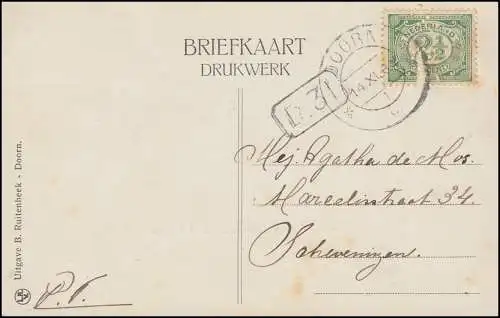 BRIEFKAART
DRUKWERK
NEDERLAND
2½
14 XI
D. 31
Mej. Agatha de Mos.
Marcelinstraat 34
Scheveningen.
Uitgave B. Ruitenbeek - Doorn.
P.V.